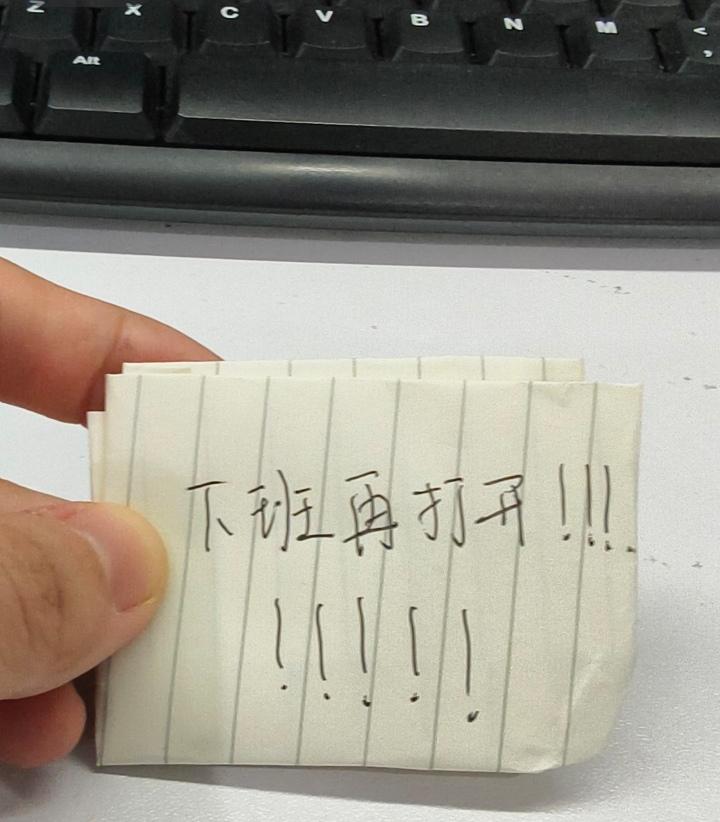 Z X C V B N M <
,
Alt
下班再打开!!!
!!!!!